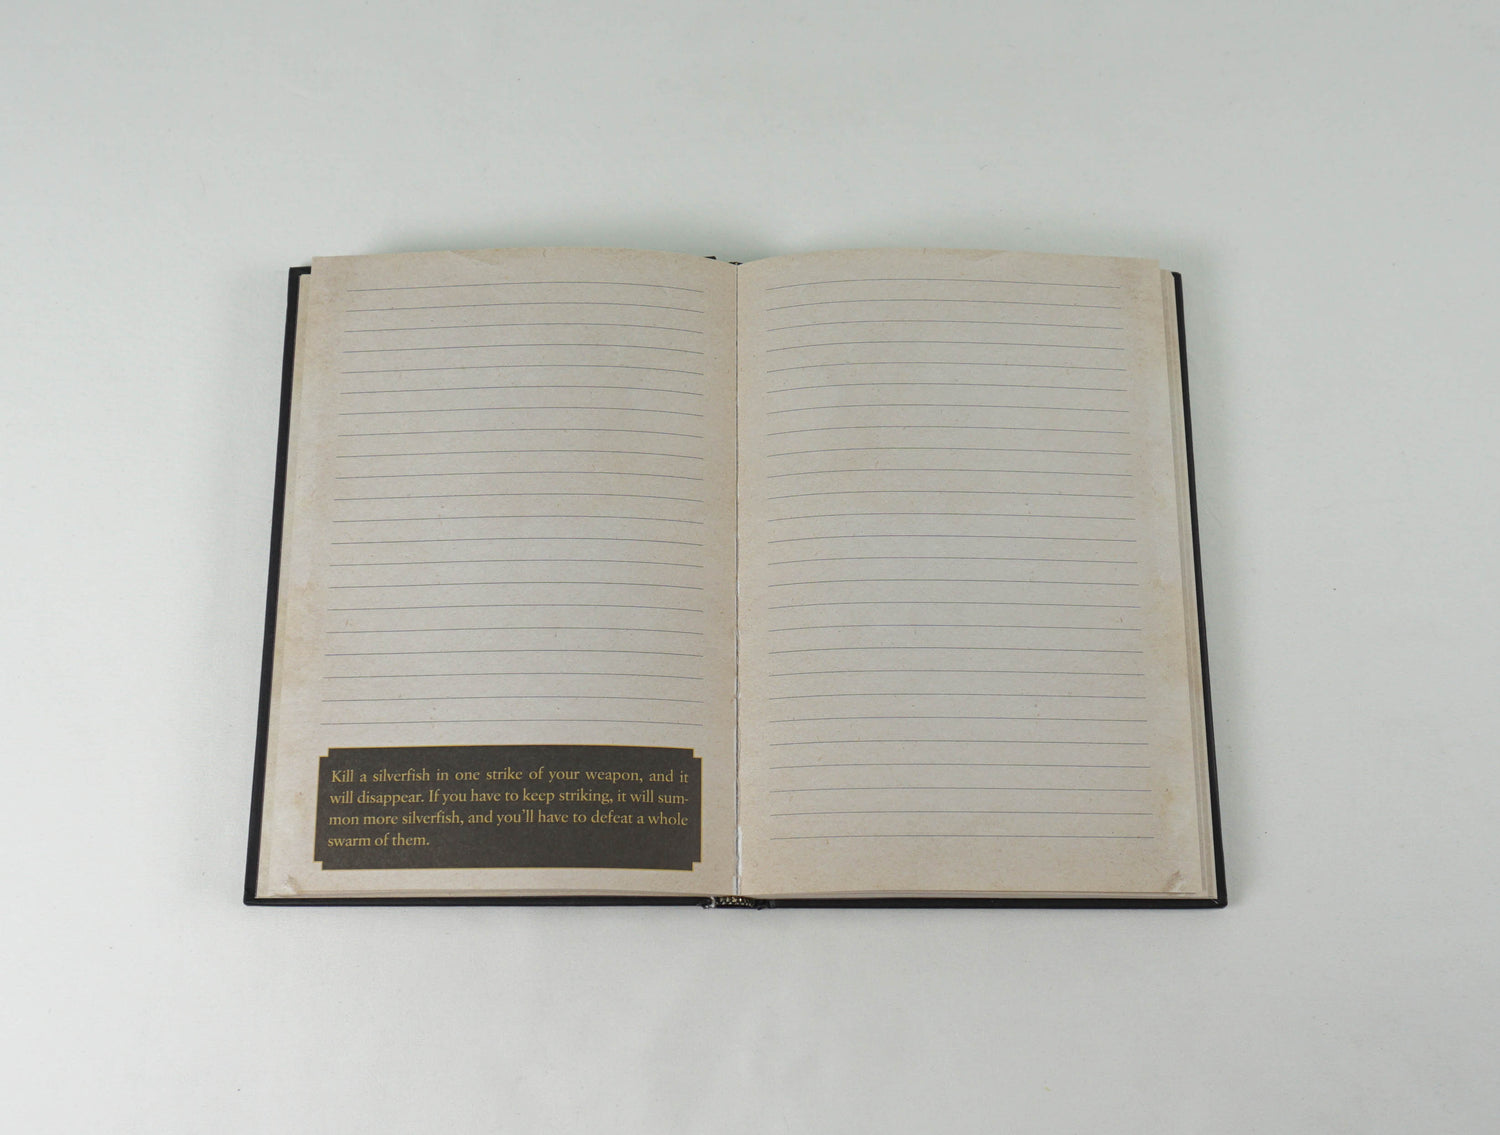 Kill a silverfish in one strike of your weapon, and it
will disappear. If you have to keep striking, it will sum-
mon more silverfish, and you'll have to defeat a whole
swarm of them.